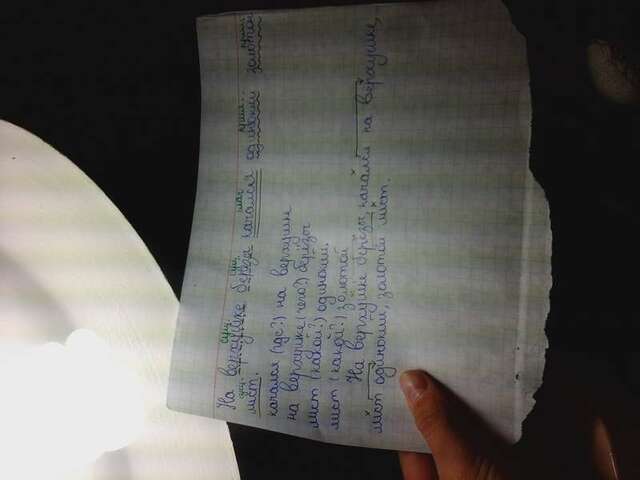 сущ. сущ. глаг. прил. прил.
На верхушке берёзы качался одинокий золотой
сущ.
лист.
качался (где?) на верхушке
на верхушке (чего?) берёзы
лист (какой?) одинокий.
лист (какой?) золотой
На верхушке берёзы качался на верхушке,
лист одинокий, золотой лист.